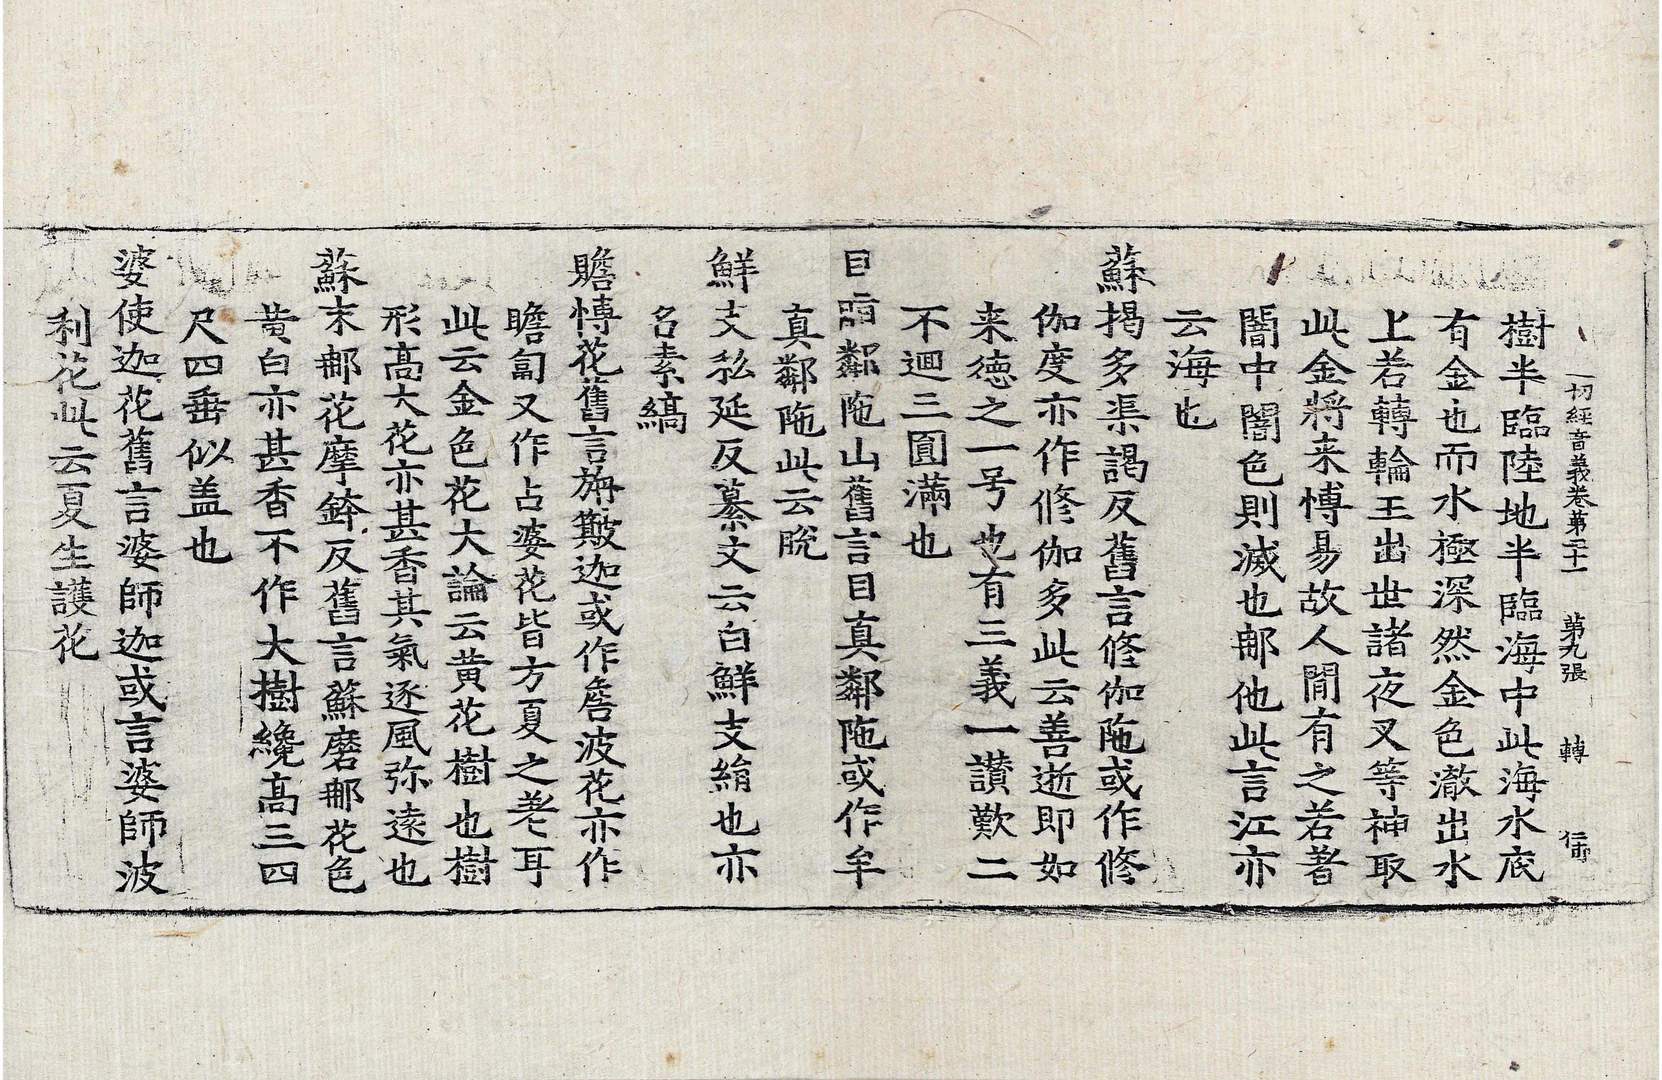 一切經音義卷第二十一 第九張 轉
樹半臨陸地半臨海中此海水底
有金也而水極深然金色澈出水
上若轉輪王出世諸夜叉等神取
此金將来愽易故人閒有之若著
闇中闇色則滅也𨙻他此言江亦
云海也
蘇揭多渠謁反舊言修伽陁或作修
伽度亦作修伽多此云善逝即如
来德之一号也有三義一讃歎二
不迴三圓滿也
目詣鄰陁山舊言目真鄰陁或作牟
真鄰陁此云脫
鮮支私延反纂文云白鮮支絹也亦
名素縞
瞻愽花舊言旃簸迦或作詹波花亦作
瞻匐又作占婆花皆方夏之差耳
此云金色花大論云黄花樹也樹
形髙大花亦甚香其氣逐風弥遠也
蘇末𨙻花摩鉢反舊言蘇磨𨙻花色
黄白亦甚香不作大樹纔髙三四
尺四垂似盖也
婆使迦花舊言婆師迦或言婆師波
利花此云夏生護花